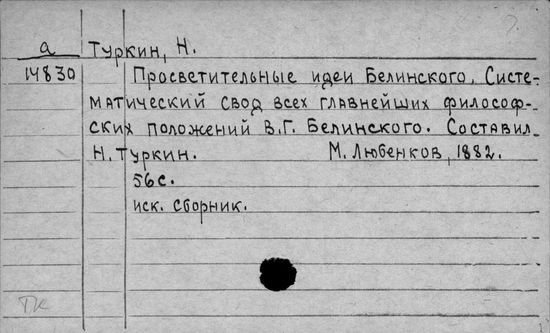 а Туркин, Н.
14830 Просветительные идеи Белинского. Систе-
матический свод всех главнейших философ-
ских положений В.Г. Белинского. Составил
Н. Туркин. М. Любенков, 1882.
56 с.
иск. сборник.
ТК